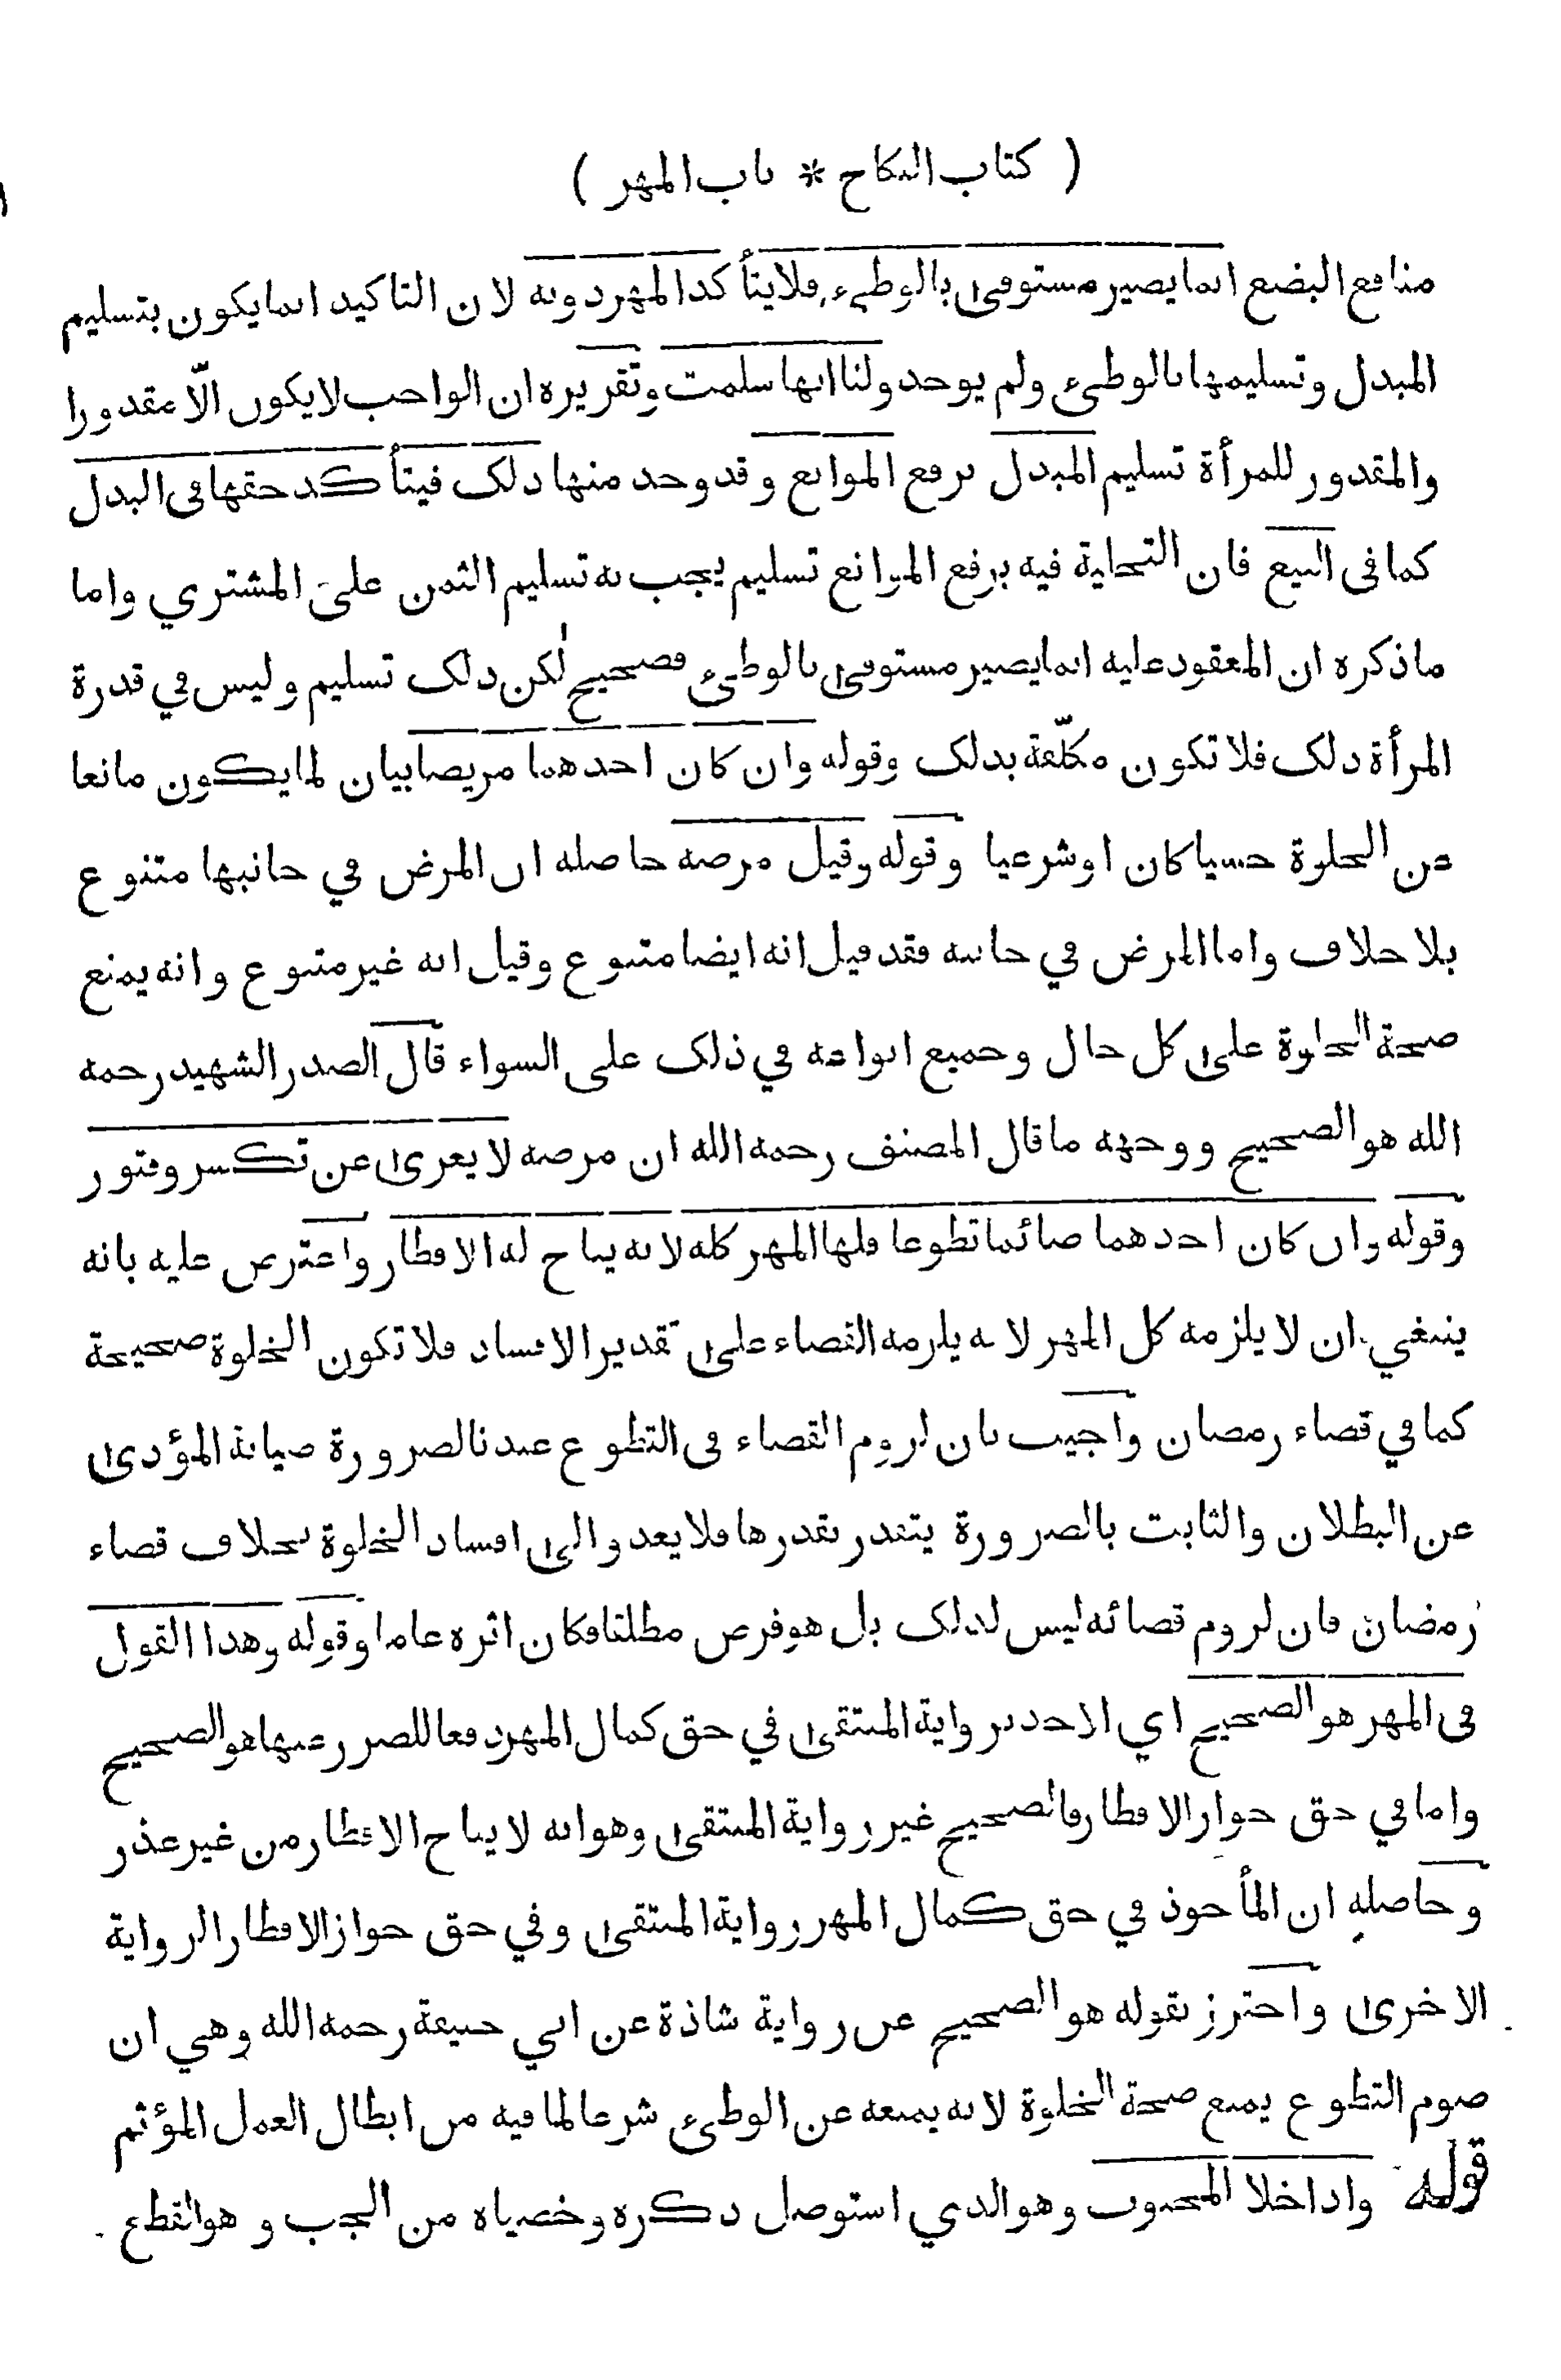 ( كتاب النكاح * باب المهر )
منافع البضع انما يصير مستوفى بالوطىء فلا يتأكد المهر دونه لان التاكيد انما يكون بتسليم
المبدل وتسليمها بالوطىء ولم يوجد ولنا انها سلمت وتقريره ان الواجب لا يكون الّا مقدورا
والمقدور للمرأة تسليم المبدل برفع الموانع وقد وجد منها ذلك فيتأكد حقها فى البدل
كما فى البيع فان التخلية فيه برفع الموانع تسليم يجب به تسليم الثمن على المشتري واما
ما ذكره ان المعقود عليه انما يصير مستوفى بالوطىء فصحيح لكن ذلك تسليم وليس في قدرة
المرأة ذلك فلا تكون مكلّفة بذلك وقوله وان كان احدهما مريضا بيان لما يكون مانعا
من الخلوة حسيا كان او شرعيا وقوله وقيل مرضه حاصله ان المرض في جانبها متنوع
بلا خلاف واما المرض في جانبه فقد قيل انه ايضا متنوع وقيل انه غير متنوع وانه يمنع
صحة الخلوة على كل حال وجميع انواعه في ذلك على السواء قال الصدر الشهيد رحمه
الله هو الصحيح ووجهه ما قال المصنف رحمه الله ان مرضه لا يعرى عن تكسر وفتور
وقوله وان كان احدهما صائما تطوعا فلها المهر كله لانه يباح له الافطار واعترض عليه بانه
ينبغي ان لا يلزمه كل المهر لانه يلزمه القضاء على تقدير الافساد فلا تكون الخلوة صحيحة
كما في قضاء رمضان واجيب بان لزوم القضاء فى التطوع عندنا لضرورة صيانة المؤدى
عن البطلان والثابت بالضرورة يتقدر بقدرها فلا يعدو الى افساد الخلوة بخلاف قضاء
رمضان فان لزوم قضائه ليس لذلك بل هو فرض مطلقا فكان اثره عاما وقوله وهذا القول
فى المهر هو الصحيح اي الاخذ برواية المنتقى في حق كمال المهر دفعا للضرر عنها هو الصحيح
واما في حق جواز الافطار فالصحيح غير رواية المنتقى وهو انه لا يباح الافطار من غير عذر
وحاصله ان المأخوذ في حق كمال المهر رواية المنتقى وفي حق جواز الافطار الرواية
الاخرى واحترز بقوله هو الصحيح عن رواية شاذة عن ابي حنيفة رحمه الله وهي ان
صوم التطوع يمنع صحة الخلوة لانه يمنعه عن الوطىء شرعا لما فيه من ابطال العمل المؤثم
قوله واذا خلا المجبوب وهو الذي استوصل ذكره وخصياه من الجب وهو القطع